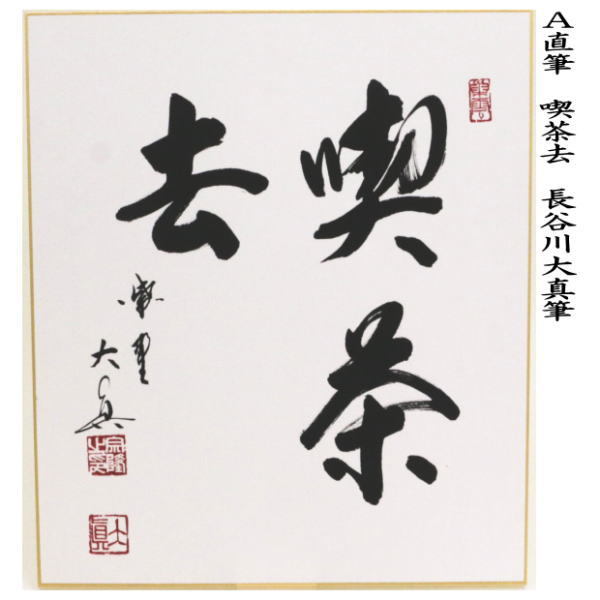 A直筆　喫茶去　長谷川大真筆
喫茶
去
大真
大真